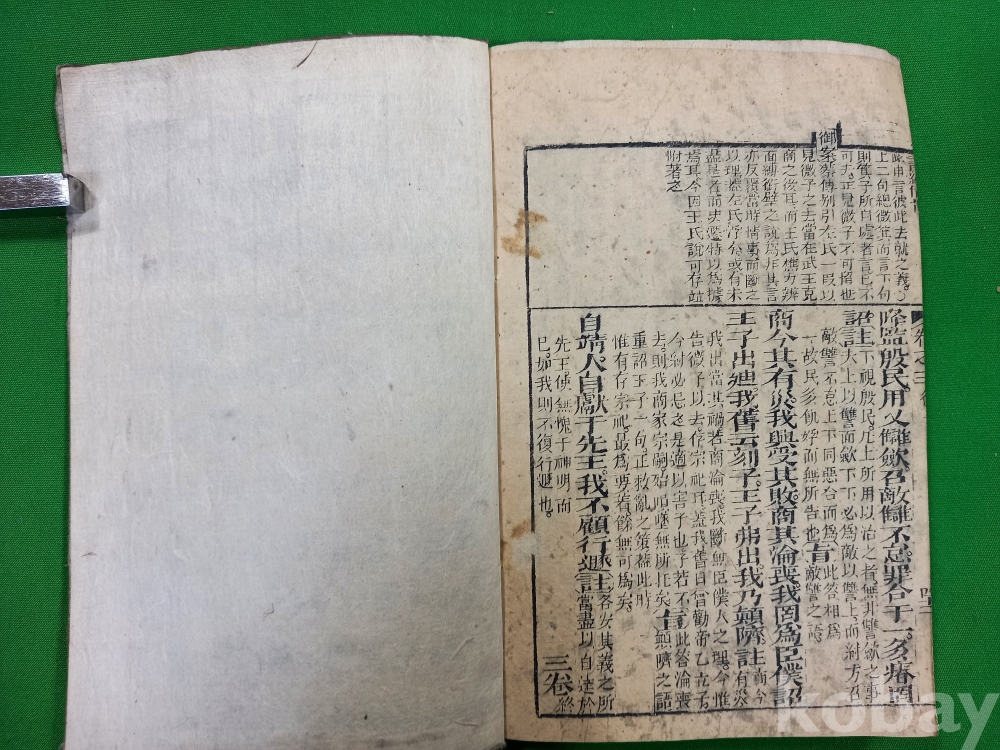 此申言彼此去就之義。○
上二句總微箕而言下句
則箕子所自處者言已不
可去正見微子不可留也
御案蔡傳別引左氏一段以
見微子之去當在武王克
商之後耳而王氏
面縛銜璧之說為非其言
亦反
以理
盡是者而史遷特以為據
焉耳今因王氏說可存並
附著之
卷之三
降監殷民用乂讎斂召敵讎不怠罪合于一多瘠罔
詔註下視殷民凡上所用以治之者無非讐斂之事
夫上以讐而斂下下必為敵以讐上而紂方召
敵讐不怠上下同惡合而為
一故民多飢殍而無所告也
此答相為
敵讐之語
商今其有災我興受其敗商其淪喪我罔為臣僕詔
王子出迪我舊云刻子王子弗出我乃顛隮註商今
有災
我出當其禍若商淪喪我斷無臣僕人之理今惟
告微子以去存宗祀耳蓋我舊日嘗勸帝乙立子
今紂必忌之是適以害子也子若不
去則我商家宗嗣殆隕墜無所托矣
此答淪喪
顛隮之語
重詔王子一句正救亂之策蓋此時
惟有存宗祀最為要著餘無可為矣
自靖人自獻于先王我不顧行遯註各安其義之所
當盡以自達於
先王使無愧于神明而
已如我則不復行遯也
三卷終
kobay